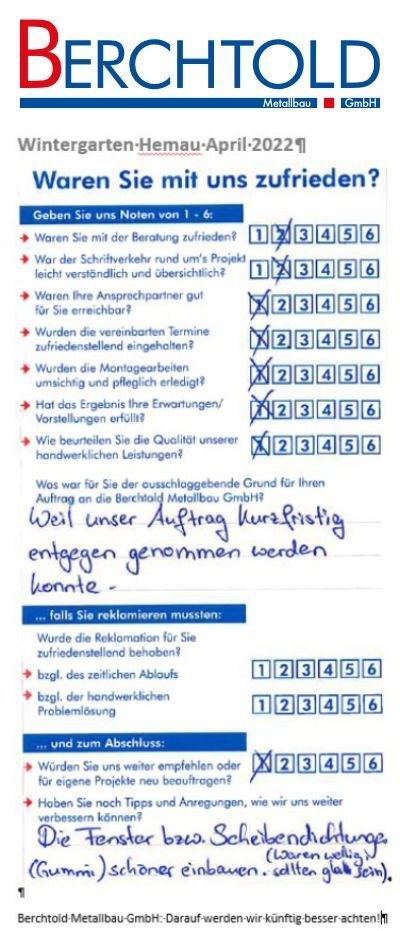 BERCHTOLD
Metallbau GmbH
Wintergarten·Hemau·April·2022¶
Waren Sie mit uns zufrieden?
Geben Sie uns Noten von 1 - 6:
Waren Sie mit der Beratung zufrieden? 1 2 3 4 5 6
War der Schriftverkehr rund um's Projekt
leicht verständlich und übersichtlich? 1 2 3 4 5 6
Waren Ihre Ansprechpartner gut
für Sie erreichbar? 1 2 3 4 5 6
Wurden die vereinbarten Termine
zufriedenstellend eingehalten? 1 2 3 4 5 6
Wurden die Montagearbeiten
umsichtig und pfleglich erledigt? 1 2 3 4 5 6
Hat das Ergebnis Ihre Erwartungen/
Vorstellungen erfüllt? 1 2 3 4 5 6
Wie beurteilen Sie die Qualität unserer
handwerklichen Leistungen? 1 2 3 4 5 6
Was war für Sie der ausschlaggebende Grund für Ihren
Auftrag an die Berchtold Metallbau GmbH?
Weil unser Auftrag kurzfristig
entgegen genommen werden
konnte.
... falls Sie reklamieren mussten:
Wurde die Reklamation für Sie
zufriedenstellend behoben?
bzgl. des zeitlichen Ablaufs 1 2 3 4 5 6
bzgl. der handwerklichen
Problemlösung 1 2 3 4 5 6
... und zum Abschluss:
Würden Sie uns weiter empfehlen oder
für eigene Projekte neu beauftragen? 1 2 3 4 5 6
Haben Sie noch Tipps und Anregungen, wie wir uns weiter
verbessern können?
Die Fenster bzw. Scheibendichtunge.
(Gummi) schöner einbauen. (waren wellig,
sollten glatt sein).
¶
Berchtold·Metallbau·GmbH:·Darauf·werden·wir·künftig·besser·achten!¶